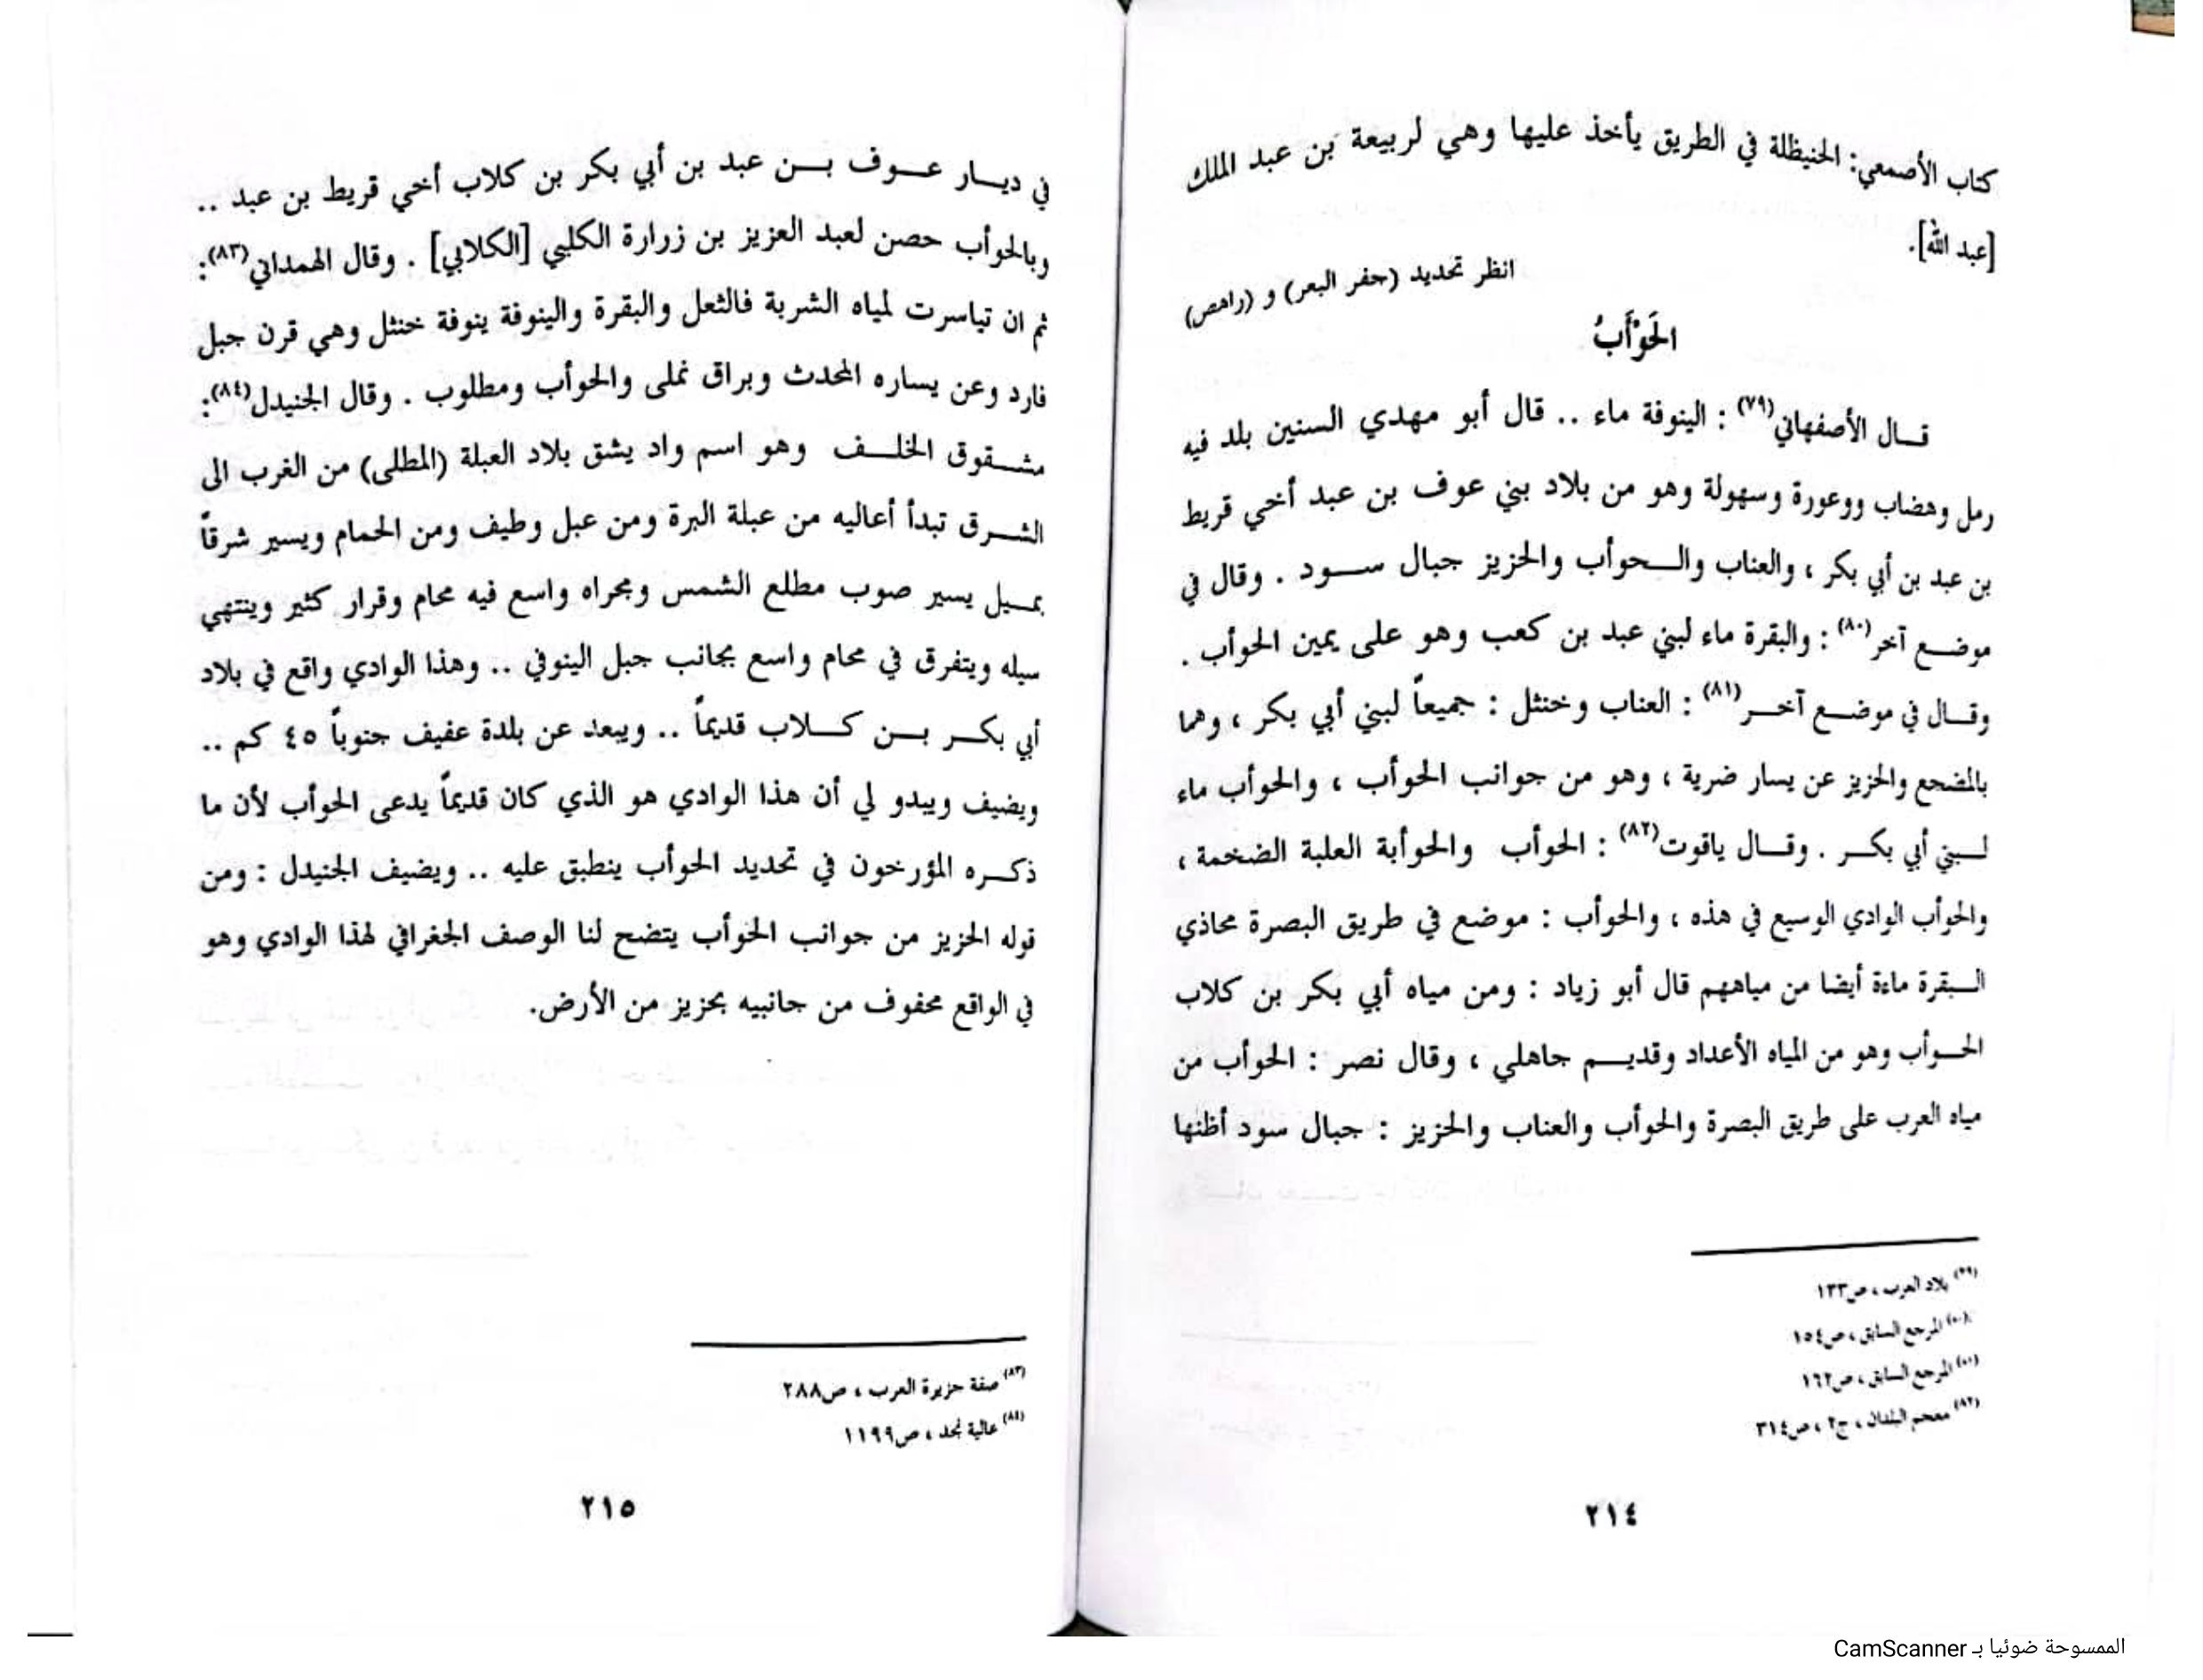 كتاب الأصمعي: الحنيظلة في الطريق يأخذ عليها وهي لربيعة بن عبد الملك
[عبد الله].
انظر تحديد (حفر البعر) و (راهص)
الحَوْأَبُ
قـال الأصفهاني(٧٩) : الينوفة ماء .. قال أبو مهدي السنين بلد فيه
رمل وهضاب ووعورة وسهولة وهو من بلاد بني عوف بن عبد أخي قريط
بن عبد بن أبي بكر ، والعناب والـحوأب والحزيز جبال سـود . وقال في
موضـع آخر(٨٠) : والبقرة ماء لبني عبد بن كعب وهو على يمين الحوأب .
وقـال في موضـع آخـر(٨١) : العناب وخنثل : جميعاً لبني أبي بكر ، وهما
بالمضجع والحزيز عن يسار ضرية ، وهو من جوانب الحوأب ، والحوأب ماء
لـبني أبي بكـر . وقـال ياقوت(٨٢) : الحوأب والحوأبة العلبة الضخمة ،
والحوأب الوادي الوسيع في هذه ، والحوأب : موضع في طريق البصرة محاذي
الـبقرة ماءة أيضا من مياههم قال أبو زياد : ومن مياه أبي بكر بن كلاب
الحـوأب وهو من المياه الأعداد وقديـم جاهلي ، وقال نصر : الحوأب من
مياه العرب على طريق البصرة والحوأب والعناب والحزيز : جبال سود أظنها
(٧٩) بلاد العرب ، ص١٣٣
(٨٠) المرجع السابق ، ص١٥٤
(٨١) المرجع السابق ، ص١٦٢
(٨٢) معجم البلدان ، ج٢ ، ص٣١٤
٢١٤
في ديـار عـوف بـن عبد بن أبي بكر بن كلاب أخي قريط بن عبد ..
وبالحوأب حصن لعبد العزيز بن زرارة الكلبي [الكلابي] . وقال الهمداني(٨٣):
ثم ان تياسرت لمياه الشربة فالثعل والبقرة والينوفة ينوفة خنثل وهي قرن جبل
فارد وعن يساره المحدث وبراق نملى والحوأب ومطلوب . وقال الجنيدل(٨٤):
مشـقوق الخلـف وهو اسم واد يشق بلاد العبلة (المطلى) من الغرب الى
الشـرق تبدأ أعاليه من عبلة البرة ومن عبل وطيف ومن الحمام ويسير شرقاً
بمـيل يسير صوب مطلع الشمس ومجراه واسع فيه محام وقرار كثير وينتهي
سيله ويتفرق في محام واسع بجانب جبل الينوفي .. وهذا الوادي واقع في بلاد
أبي بكـر بـن كـلاب قديماً .. ويبعد عن بلدة عفيف جنوباً ٤٥ كم ..
ويضيف ويبدو لي أن هذا الوادي هو الذي كان قديماً يدعى الحوأب لأن ما
ذكـره المؤرخون في تحديد الحوأب ينطبق عليه .. ويضيف الجنيدل : ومن
قوله الحزيز من جوانب الحوأب يتضح لنا الوصف الجغرافي لهذا الوادي وهو
في الواقع محفوف من جانبيه بحزيز من الأرض.
(٨٣) صفة جزيرة العرب ، ص٢٨٨
(٨٤) عالية نجد ، ص١١٩٩
٢١٥
الممسوحة ضوئيا بـ CamScanner